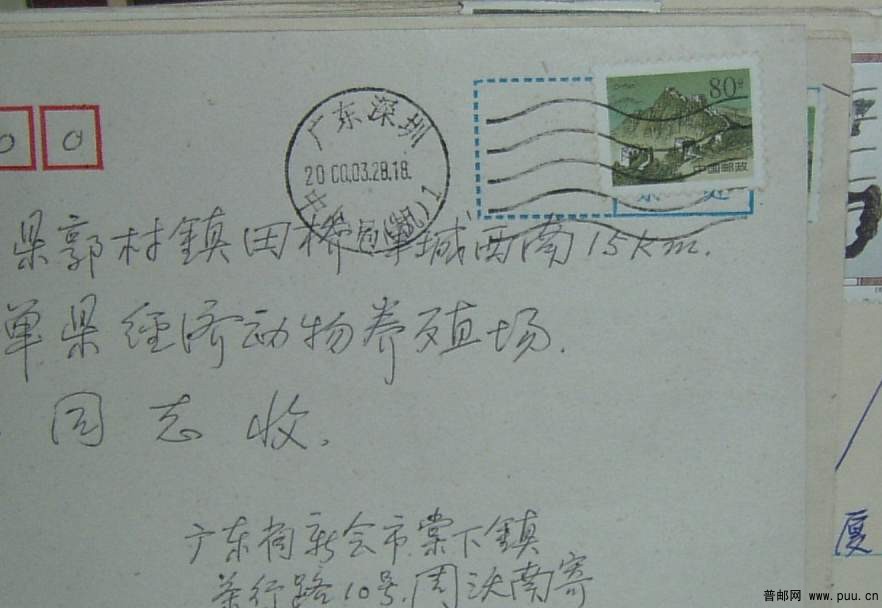 80分
中国邮政
广东深圳
2000.03.28.18
0 0
県郭村鎮田桥 単城西南15km.
单県经济动物养殖场.
同志收.
广东省新会市棠下鎮
行路10号.周沃南寄
厦
普邮网 www.puu.cn